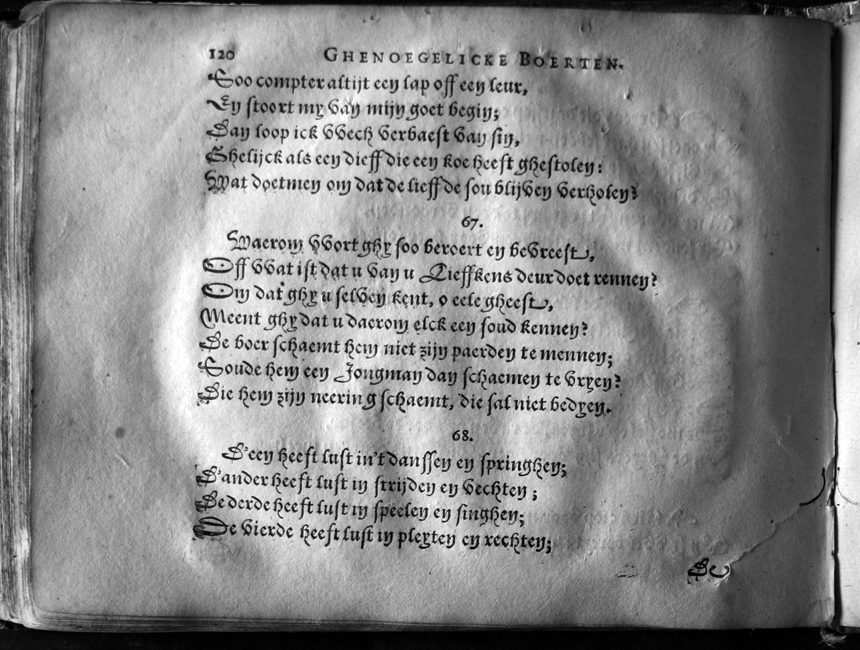 120 GHENOEGELICKE BOERTEN.
Soo compter altijt een lap off een leur,
En stoort my van mijn goet begin;
Dan loop ick VVech verbaest van sin,
Ghelijck als een dieff die een koe heeft ghestolen:
Wat doetmen om dat de lieffde sou blijven verholen?
67.
Waerom VVort ghy soo beroert en bevreest,
Off VVat ist dat u van u Lieffkens deur doet rennen?
Om dat ghy u selven kent, o eele gheest,
Meent ghy dat u daerom elck een soud kennen?
De boer schaemt hem niet zijn paerden te mennen;
Soude hem een Jongman dan schaemen te vryen?
Die hem zijn neering schaemt, die sal niet bedyen.
68.
D'een heeft lust in't danssen en springhen;
D'ander heeft lust in strijden en vechten;
De derde heeft lust in speelen en singhen;
De vierde heeft lust in pleyten en rechten;
De